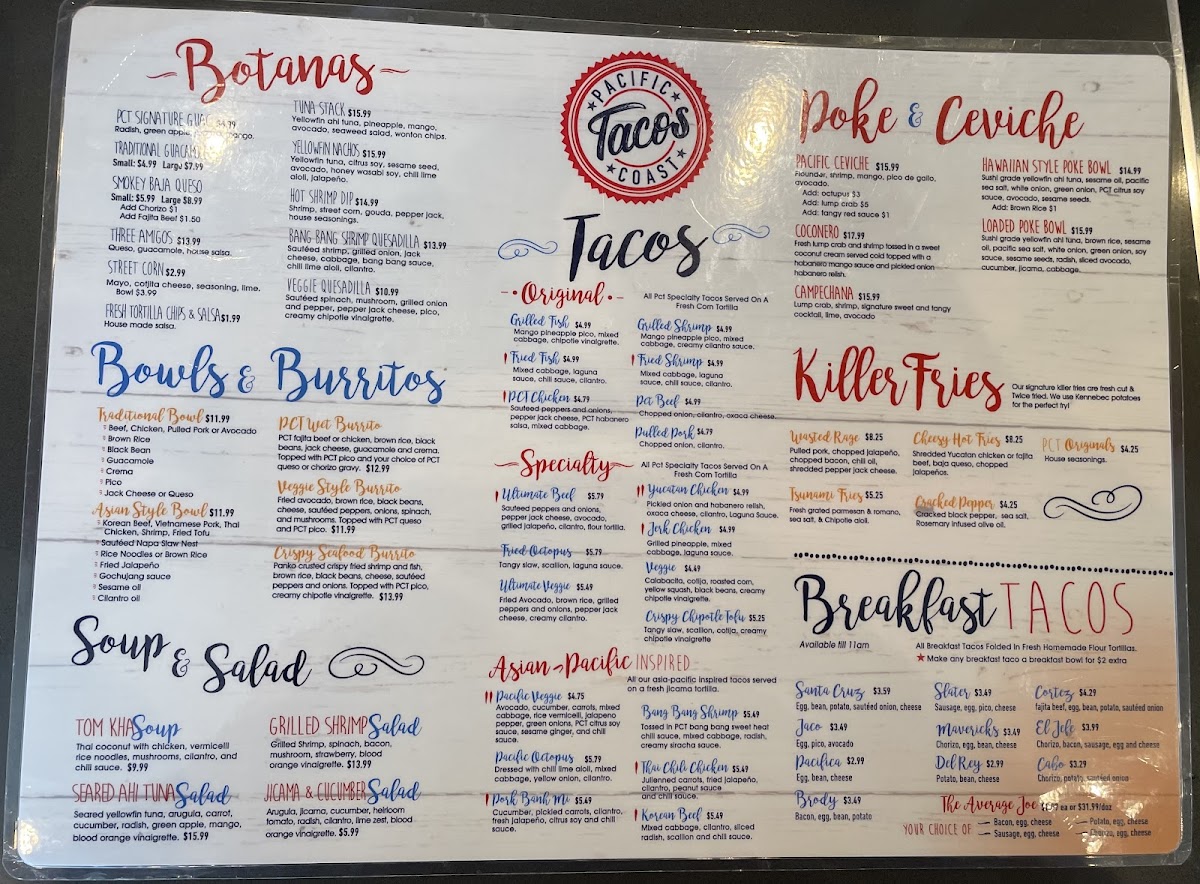 Botanas
PCT SIGNATURE GUAC
Radish, green apple, mango.
TRADITIONAL
Small: $4.99 Large $7.99
SMOKEY BAJA QUESO
Small: $5.99 Large $8.99
Add Chorizo $1
Add Fajita Beef $1.50
THREE AMIGOS $13.99
Queso, guacamole, house salsa.
STREET CORN $2.99
Mayo, cotjita cheese, seasoning, lime.
Bowl $3.99
FRESH TORTILLA CHIPS & SALSA $1.99
House made salsa.
TUNA STACK $15.99
Yellowfin ahi tuna, pineapple, mango,
avocado, seaweed salad, wonton chips.
YELLOWFIN NACHOS $15.99
Yellowfin tuna, citrus soy, sesame seed,
avocado, honey wasabi soy, chili lime
aioli, jalapeño.
HOT SHRIMP DIP $14.99
Shrimp, street corn, gouda, pepper jack,
house seasonings.
BANG BANG SHRIMP QUESADILLA $13.99
Sautéed shrimp, grilled onion, jack
cheese, cabbage, bang bang sauce,
chili lime aioli, cilantro.
VEGGIE QUESADILLA $10.99
Sautéed spinach, mushroom, grilled onion
and pepper, pepper jack cheese, pico,
creamy chipotle vinaigrette.
Bowls & Burritos
Traditional Bowl $11.99
Beef, Chicken, Pulled Pork or Avocado
Brown Rice
Black Bean
Guacamole
Crema
Pico
Jack Cheese or Queso
Asian Style Bowl $11.99
Korean Beef, Vietnamese Pork, Thai
Chicken, Shrimp, Fried Tofu
Sautéed Napa Slaw Nest
Rice Noodles or Brown Rice
Fried Jalapeño
Gochujang sauce
Sesame oil
Cilantro oil
PCT Wet Burrito
PCT fajita beef or chicken, brown rice, black
beans, jack cheese, guacamole and crema.
Topped with PCT pico and your choice of PCT
queso or chorizo gravy. $12.99
Veggie Style Burrito
Fried avocado, brown rice, black beans,
cheese, sautéed peppers, onions, spinach,
and mushrooms. Topped with PCT queso
and PCT pico. $11.99
Crispy Seafood Burrito
Panko crusted crispy fried shrimp and fish,
brown rice, black beans, cheese, sautéed
peppers and onions. Topped with PCT pico,
creamy chipotle vinaigrette. $13.99
Soup & Salad
TOM KHA Soup
Thai coconut with chicken, vermicelli
rice noodles, mushrooms, cilantro, and
chili sauce. $9.99
SEARED AHI TUNA Salad
Seared yellowfin tuna, arugula, carrot,
cucumber, radish, green apple, mango,
blood orange vinaigrette. $15.99
GRILLED SHRIMP Salad
Grilled Shrimp, spinach, bacon,
mushroom, strawberry, blood
orange vinaigrette. $13.99
JICAMA & CUCUMBER Salad
Arugula, jicama, cucumber, heirloom
tomato, radish, cilantro, lime zest, blood
orange vinaigrette. $5.99
PACIFIC
Tacos
COAST
Tacos
Original
All Pct Specialty Tacos Served On A
Fresh Corn Tortilla
Grilled Fish $4.99
Mango pineapple pico, mixed
cabbage, chipotle vinaigrette.
Fried Fish $4.99
Mixed cabbage, laguna
sauce, chili sauce, cilantro.
PCT Chicken $4.79
Sauteed peppers and onions,
pepper jack cheese, PCT habanero
salsa, mixed cabbage.
Grilled Shrimp $4.99
Mango pineapple pico, mixed
cabbage, creamy cilantro sauce.
Fried Shrimp $4.99
Mixed cabbage, laguna
sauce, chili sauce, cilantro.
Pct Beef $4.99
Chopped onion, cilantro, oaxaca cheese.
Pulled Pork $4.79
Chopped onion, cilantro.
Specialty
All Pct Specialty Tacos Served On A
Fresh Corn Tortilla
Ultimate Beef $5.79
Sauteed peppers and onions,
pepper jack cheese, avocado,
grilled jalapeño, cilantro, flour tortilla.
Fried Octopus $5.79
Tangy slaw, scallion, laguna sauce.
Ultimate Veggie $5.49
Fried Avocado, brown rice, grilled
peppers and onions, pepper jack
cheese, creamy cilantro.
Yucatan Chicken $4.99
Pickled onion and habanero relish,
oxaca cheese, cilantro, Laguna Sauce.
Jerk Chicken $4.99
Grilled pineapple, mixed
cabbage, laguna sauce.
Veggie $4.49
Calabacita, cotija, roasted corn,
yellow squash, black beans, creamy
chipotle vinaigrette.
Crispy Chipotle Tofu $5.25
Tangy slaw, scallion, cotija, creamy
chipotle vinaigrette
Asian-Pacific INSPIRED
All our asia-pacific inspired tacos served
on a fresh jicama tortilla.
Pacific Veggie $4.75
Avocado, cucumber, carrots, mixed
cabbage, rice vermicelli, jalapeno
pepper, green onions, PCT citrus soy
sauce, sesame ginger, and chili
sauce.
Pacific Octopus $5.79
Dressed with chili lime aioli, mixed
cabbage, yellow onion, cilantro.
Pork Banh Mi $5.49
Cucumber, pickled carrots, cilantro,
fresh jalapeño, citrus soy and chili
sauce.
Bang Bang Shrimp $5.49
Tossed in PCT bang bang sweet heat
chili sauce, mixed cabbage, radish,
creamy siracha sauce.
Thai Chili Chicken $5.49
Julienned carrots, fried jalapeño,
cilantro, peanut sauce
and chili sauce.
Korean Beef $5.49
Mixed cabbage, cilantro, sliced
radish, scallion and chili sauce.
Poke & Ceviche
PACIFIC CEVICHE $15.99
Flounder, shrimp, mango, pico de gallo,
avocado.
Add: octupus $3
Add: lump crab $5
Add: tangy red sauce $1
COCONERO $17.99
Fresh lump crab and shrimp tossed in a sweet
coconut cream served cold topped with a
habanero mango sauce and pickled onion
habanero relish.
CAMPECHANA $15.99
Lump crab, shrimp, signature sweet and tangy
cocktail, lime, avocado
HAWAIIAN STYLE POKE BOWL $14.99
Sushi grade yellowfin ahi tuna, sesame oil, pacific
sea salt, white onion, green onion, PCT citrus soy
sauce, avocado, sesame seeds.
Add: Brown Rice $1
LOADED POKE BOWL $15.99
Sushi grade yellowfin ahi tuna, brown rice, sesame
oil, pacific sea salt, white onion, green onion, soy
sauce, sesame seeds, radish, sliced avocado,
cucumber, jicama, cabbage.
Killer Fries
Our signature killer fries are fresh cut &
Twice fried. We use Kennebec potatoes
for the perfect fry!
Wasted Rage $8.25
Pulled pork, chopped jalapeño,
chopped bacon, chili oil,
shredded pepper jack cheese.
Tsunami Fries $5.25
Fresh grated parmesan & romano,
sea salt, & Chipotle aioli.
Cheesy Hot Fries $8.25
Shredded Yucatan chicken or fajita
beef, baja queso, chopped
jalapeños.
Cracked Pepper $4.25
Cracked black pepper, sea salt,
Rosemary infused olive oil.
PCT Originals $4.25
House seasonings.
Breakfast TACOS
Available till 11am
All Breakfast Tacos Folded In Fresh Homemade Flour Tortillas.
★ Make any breakfast taco a breakfast bowl for $2 extra
Santa Cruz $3.59
Egg, bean, potato, sautéed onion
Jaco $3.49
Egg, pico, avocado
Pacifica $2.99
Egg, bean, cheese
Brody $3.49
Bacon, egg, bean, potato
Slater $3.49
Sausage, egg, pico, cheese
Maverick's $3.49
Chorizo, egg, bean, cheese
Del Rey $2.99
Potato, bean, cheese
Cortez $4.29
fajita beef, egg, bean, potato, sautéed onion
El Jefe $3.99
Chorizo, bacon, sausage, egg and cheese
Cabo $3.29
Chorizo, potato, sautéed onion
The Average Joe ea or $31.99/doz
YOUR CHOICE OF
Bacon, egg, cheese
Sausage, egg, cheese
Potato, egg, cheese
Chorizo, egg, cheese